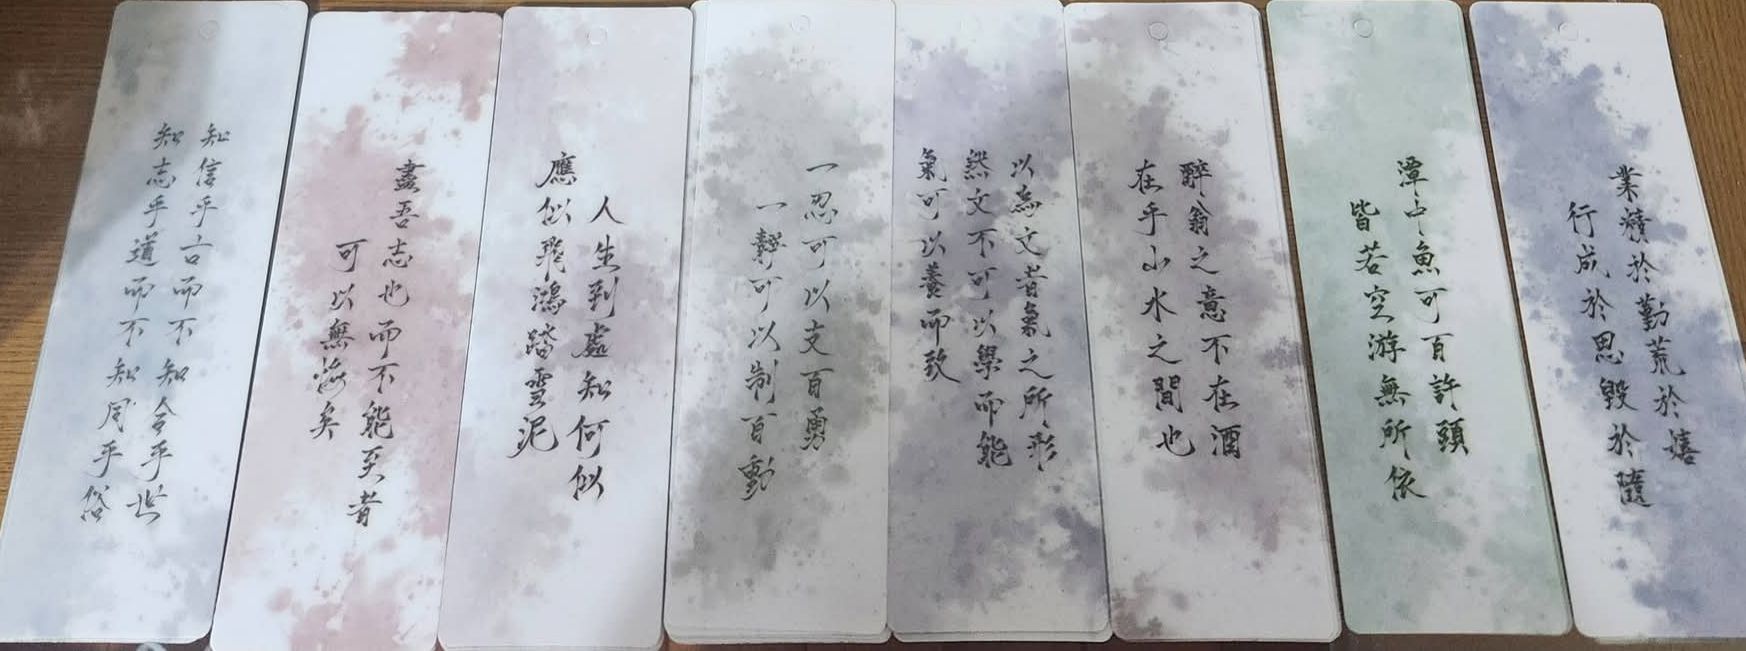 業精於勤荒於嬉
行成於思毀於隨
潭中魚可百許頭
皆若空游無所依
醉翁之意不在酒
在乎山水之間也
以為文者氣之所形
然文不可以學而能
氣可以養而致
一忍可以支百勇
一靜可以制百動
人生到處知何似
應似飛鴻踏雪泥
盡吾志也而不能至者
可以無悔矣
知信乎古而不知合乎世
知志乎道而不知同乎俗